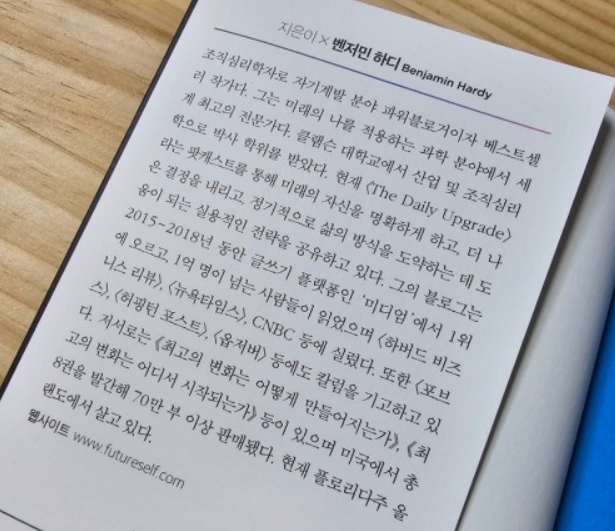 지은이 × 벤저민 하디 Benjamin Hardy
조직심리학자로 자기계발 분야 파워블로거이자 베스트셀
러 작가다. 그는 미래의 나를 적용하는 과학 분야에서 세
계 최고의 전문가다. 클렘슨 대학교에서 산업 및 조직심리
학으로 박사 학위를 받았다. 현재 〈The Daily Upgrade〉
라는 팟캐스트를 통해 미래의 자신을 명확하게 하고, 더 나
은 결정을 내리고, 정기적으로 삶의 방식을 도약하는 데 도
움이 되는 실용적인 전략을 공유하고 있다. 그의 블로그는
2015~2018년 동안 글쓰기 플랫폼인 ‘미디엄’에서 1위
에 오르고, 1억 명이 넘는 사람들이 읽었으며 〈하버드 비즈
니스 리뷰〉, 〈뉴욕타임스〉, CNBC 등에 실렸다. 또한 〈포브
스〉, 〈허핑턴 포스트〉, 〈옵저버〉 등에도 칼럼을 기고하고 있
다. 저서로는 《최고의 변화는 어떻게 만들어지는가》, 《최
고의 변화는 어디서 시작되는가》 등이 있으며 미국에서 총
8권을 발간해 70만 부 이상 판매됐다. 현재 플로리다주 올
랜도에서 살고 있다.
웹사이트 www.futureself.com